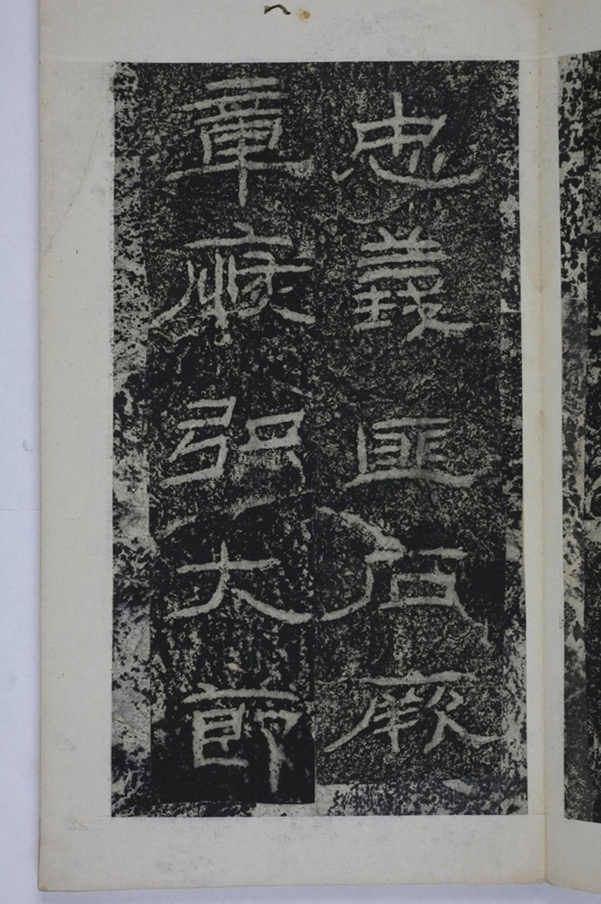 忠義匪石厥
章弘大節